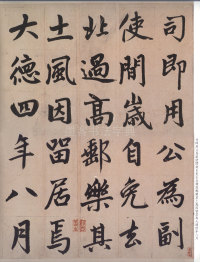 司即用公為副
使間歲自免去
北過高郵樂其
土風因留居焉
大德四年八月